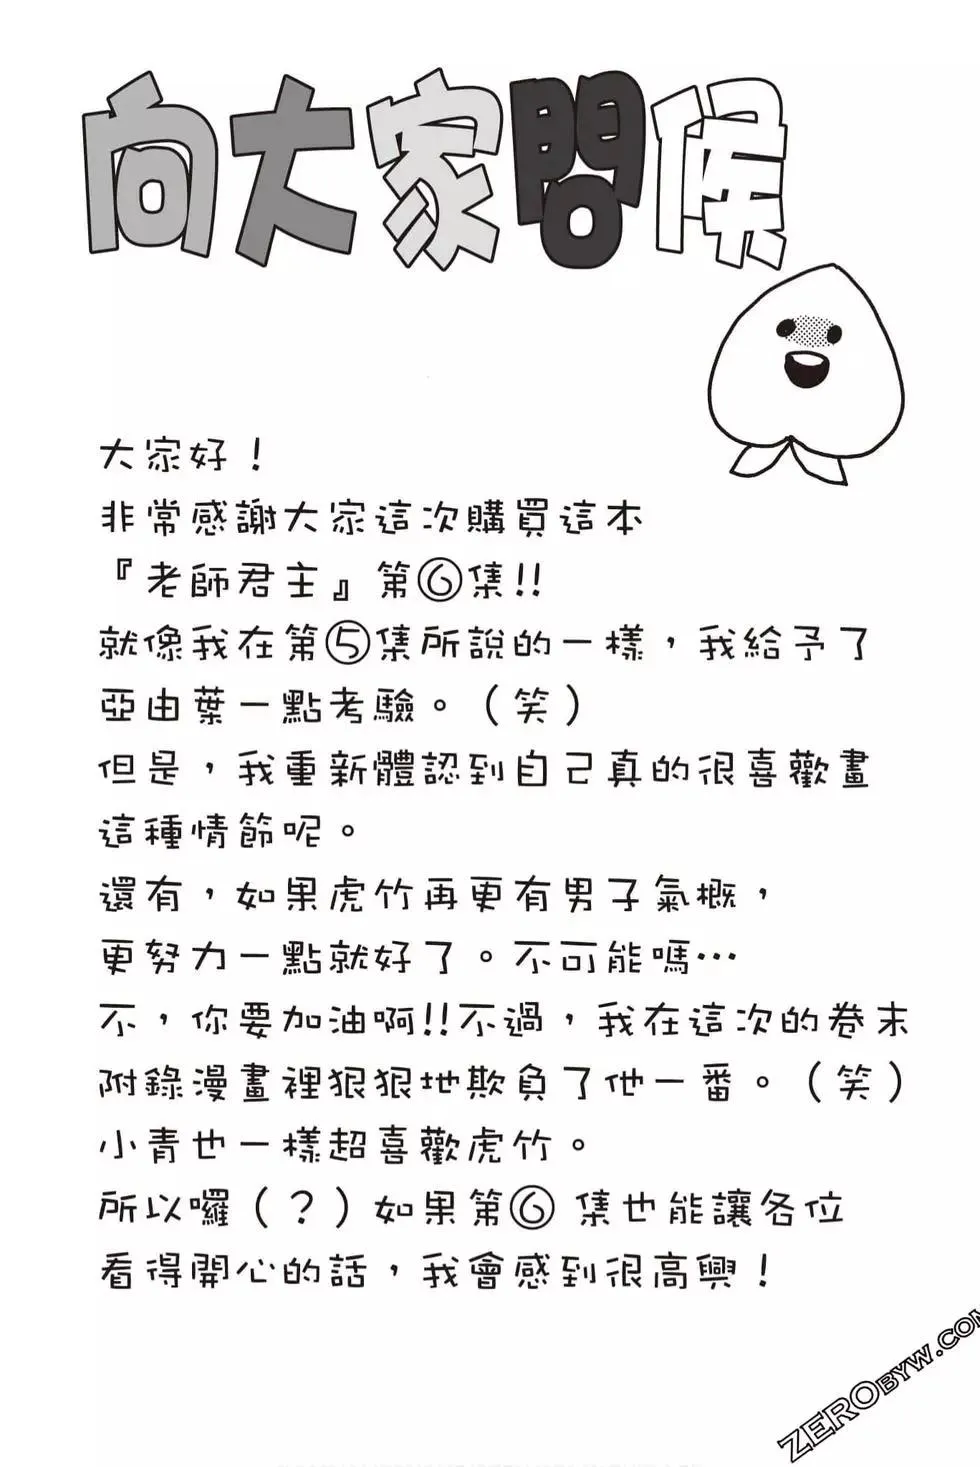 向大家問候
大家好！
非常感謝大家這次購買這本
『老師君主』第⑥集!!
就像我在第⑤集所說的一樣，我給予了
亞由葉一點考驗。（笑）
但是，我重新體認到自己真的很喜歡畫
這種情節呢。
還有，如果虎竹再更有男子氣概，
更努力一點就好了。不可能嗎…
不，你要加油啊!!不過，我在這次的卷末
附錄漫畫裡狠狠地欺負了他一番。（笑）
小青也一樣超喜歡虎竹。
所以囉（？）如果第⑥ 集也能讓各位
看得開心的話，我會感到很高興！
ZEROBYW.COM